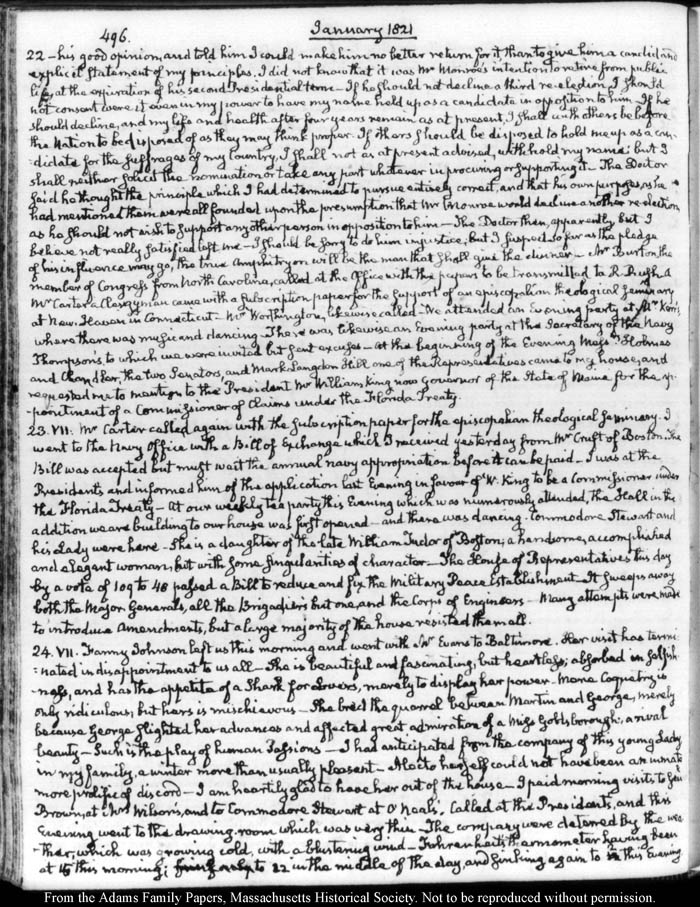 496.
January 1821
22 - his good opinion, and told him I could make him no better return for it than to give him a candid and
explicit statement of my principles. I did not know that it was Mr Monroe's intention to retire from public
life at the expiration of his second Presidential term - If he should not decline a third re-election, I should
not consent were it even in my power to have my name held up as a candidate in opposition to him - If he
should decline, and my life and health after four years remain as at present, I shall with others be before
the Nation to be disposed of as they may think proper. If others should be disposed to hold me up as a can-
didate for the suffrages of my Country, I shall not as at present advised, withhold my name: but I
shall neither solicit the nomination or take any part whatever in procuring or supporting it - The Doctor
said he thought the principle which I had determined to pursue entirely correct, and that his own purposes, as he
had mentioned them were all founded upon the presumption that Mr Monroe would decline another re-election
as he should not wish to support any other person in opposition to him - The Doctor then, apparently but I
believe not really satisfied left me - I should be sorry to do him injustice, but I suspect so far as the pledge
of his influence may go, the true Amphitryon will be the man that shall give the dinner - Mr Burton, the
member of Congress from North Carolina, called at the Office with the papers to be transmitted to R. Rush, &
Mr Carter a Clergyman came with a subscription paper for the support of an episcopalian theological Seminary
at New Haven in Connecticut - Mr Worthington, likewise called - We attended an Evening party at Mrs Kerr's,
where there was music and dancing. There was likewise an Evening party at the Secretary of the Navy
Thompson's to which we were invited but sent excuses - At the beginning of the Evening Messrs Holmes
and Chandler, the two Senators, and Mark Langdon Hill one of the Representatives came to my house, and
requested me to mention to the President Mr William King now Governor of the State of Maine for the ap-
-pointment of a Commissioner of Claims under the Florida Treaty.
23. VII. Mr Carter called again with the subscription paper for the episcopalian theological Seminary. I
went to the Navy Office with a Bill of Exchange which I received yesterday from Mr Cruft of Boston. The
Bill was accepted but must wait the annual navy appropriation before it can be paid - I was at the
Presidents and informed him of the application last Evening in favour of W. King to be a Commissioner under
the Florida Treaty - At our weekly tea party this Evening which was numerously attended, the Hall in the
addition we are building to our house was first opened - and there was dancing. Commodore Stewart and
his Lady were here - She is a daughter of the late William Tudor of Boston; a handsome, accomplished
and elegant woman; but with some singularities of character - The House of Representatives this day
by a vote of 109 to 48 passed a Bill to reduce and fix the Military Peace Establishment - It sweeps away
both the Major Generals, all the Brigadiers but one, and the Corps of Engineers - Many attempts were made
to introduce Amendments, but a large majority of the house resisted them all.
24. VII. Fanny Johnson left us this morning and went with Mr Evans to Baltimore. Her visit has termi-
-nated in disappointment to us all - She is beautiful and fascinating, but heartless; absorbed in selfish-
-ness, and has the appetite of a Shark for Lovers, merely to display her power - Mere Coquetry is
only ridiculous, but hers is mischievous - She bred the quarrel between Martin and George, merely
because George slighted her advances and affected great admiration of a Miss Goldsborough, a rival
beauty - Such is the play of human Passions - I had anticipated from the company of this young Lady
in my family, a winter more than usually pleasant - Alecto herself could not have been an inmate
more prolific of discord - I am heartily glad to have her out of the house - I paid morning visits to Genl
Brown, at Mrs Wilson's, and to Commodore Stewart at O'Neals. Called at the President's, and this
Evening went to the drawing-room which was very thin - The company were deterred by the wea-
-ther, which was growing cold, with a blustering wind - Fahrenheit's thermometer having been
at 15 this morning; to 22 in the middle of the day, and sinking again to this Evening
From the Adams Family Papers, Massachusetts Historical Society. Not to be reproduced without permission.